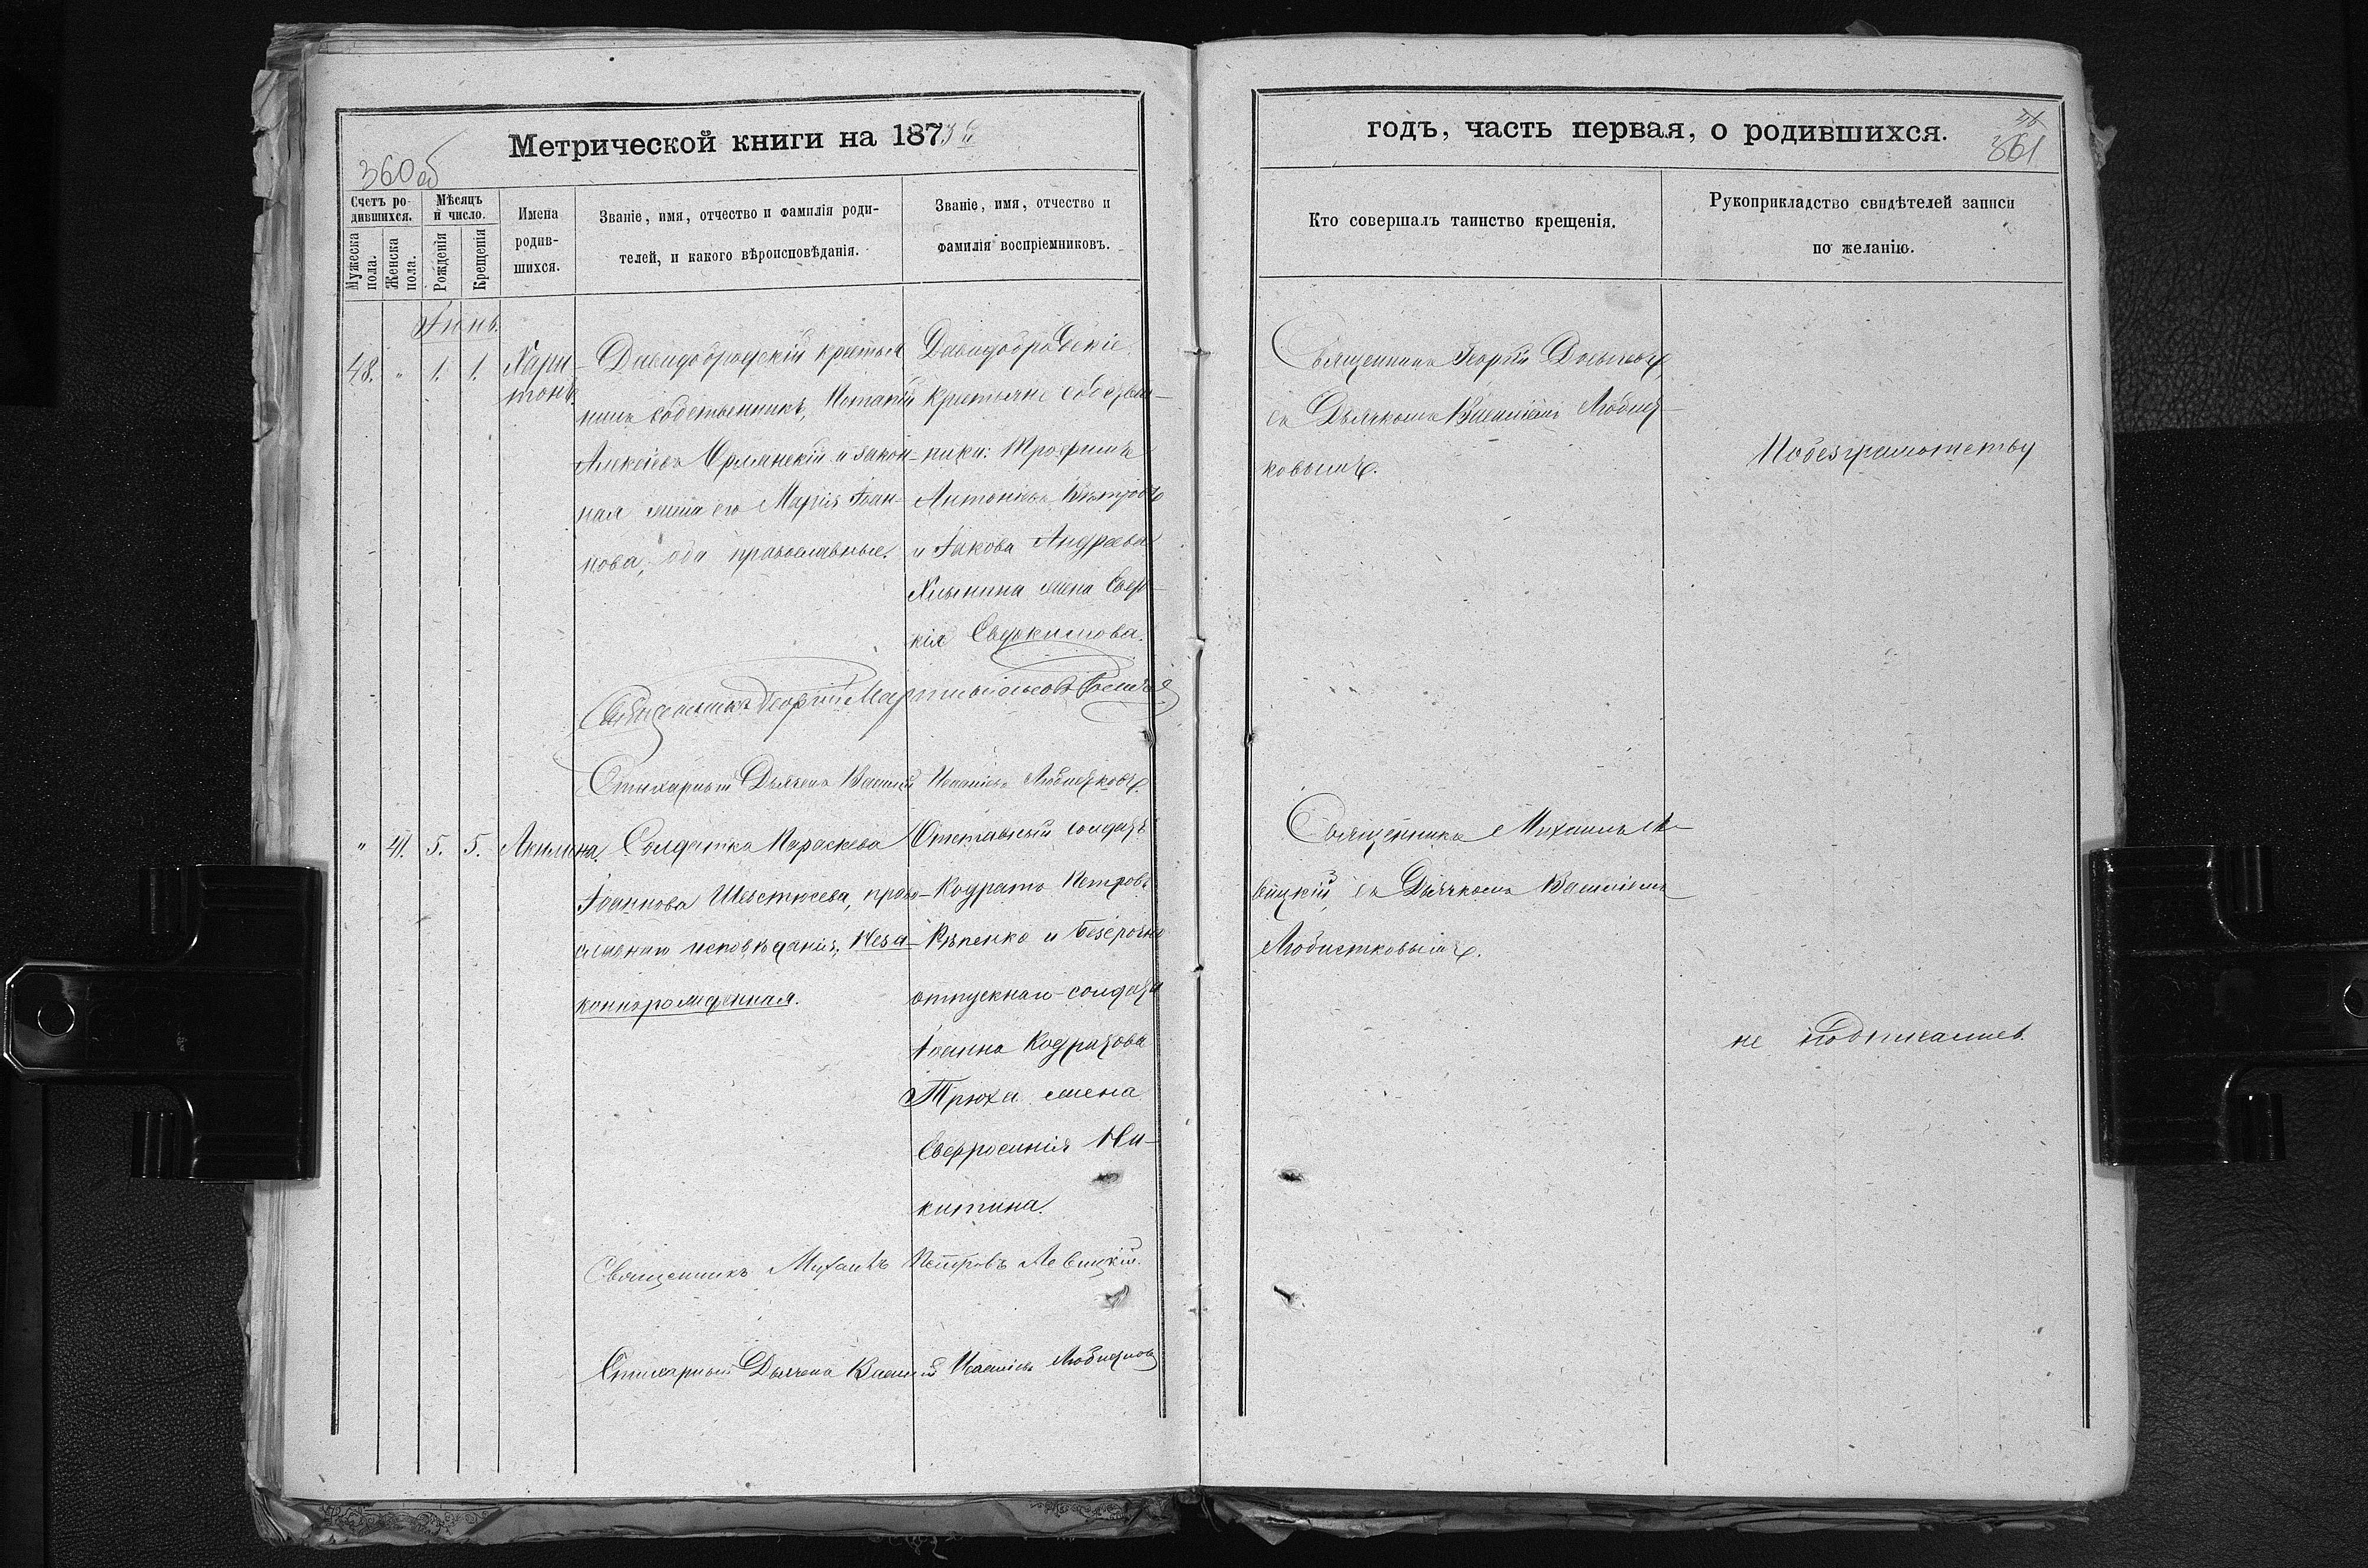 Метрической книги на 1873й
360об
Счетъ родившихся.
Мужеска пола.
Женска пола.
Мѣсяцъ и число.
Рожденія
Крещенія
Имена родив-
шихся.
Званіе, имя, отчество и фамилія роди-
телей, и какого вѣроисповѣданія.
Званіе, имя, отчество и
фамилія воспріемниковъ.
Іюнь.
48. " 1. 1. Хари-
тонъ.
Давидобродскій крестья
нинъ собственникъ, Потапій
Алексіевъ Орлянскій и закон-
ная жена его Марія Іоан-
нова, оба православные.
Давидобродскіе
крестьяне собствен-
ники: Трофимъ
Антоніевъ
и Іакова Андреева
жена Евдо-
кія
Священникъ Георгій
Стихарный Дьячекъ Василій Любистковъ.
" 41. 5. 5. Акилина.
Солдатка Параскева
Іоаннова Шостжева, право-
славнаго исповѣданія, Неза-
коннорожденная.
Отставный солдатъ
Кодратъ Петровъ
Рѣпенко и безсрочно
отпускнаго солдата
Іоанна Кодратова
Трюха жена
Евфросинія Ни-
китина.
Священникъ Михаилъ Петровъ Левицкій.
Стихарный Дьячекъ Василій Любистковъ
годъ, часть первая, о родившихся.
361
Кто совершалъ таинство крещенія.
Рукоприкладство свидѣтелей записи
по желанію.
Священникъ Георгій
съ Дьячкомъ Василіемъ Любист-
ковымъ.
По безграмотству
Священникъ Михаилъ Ле-
вицкій, съ Дьячкомъ Василіемъ
Любистковымъ.
не подписались.